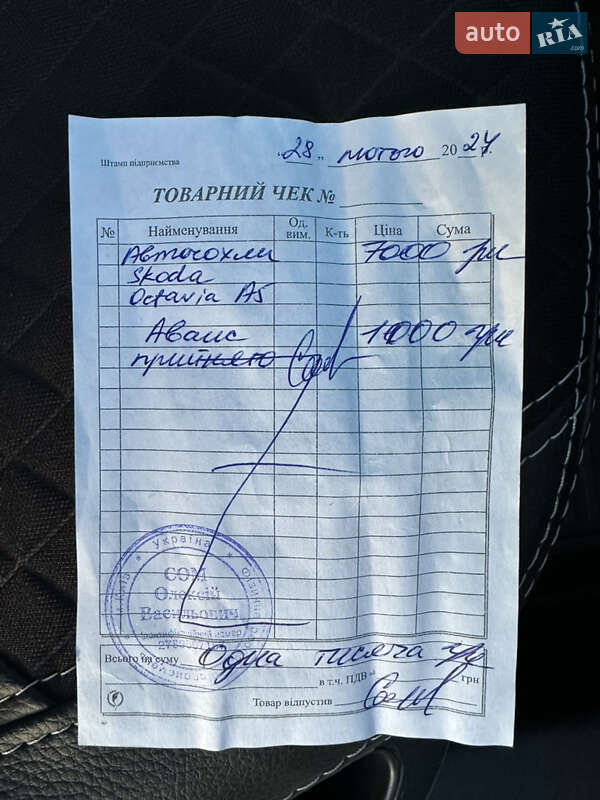 auto RIA.com
Штамп підприємства
"28" лютого 2024 г.
ТОВАРНИЙ ЧЕК №
№ Найменування Од. вим. К-ть Ціна Сума
Авточохли 7000 грн
Skoda
Octavia A5
Аванс 1000 грн
прийнято
Україна
СОМ
Олексій
Васильович
Ідентифікаційний номер
Всього на суму Одна тисяча грн
в т.ч. ПДВ грн
Товар відпустив